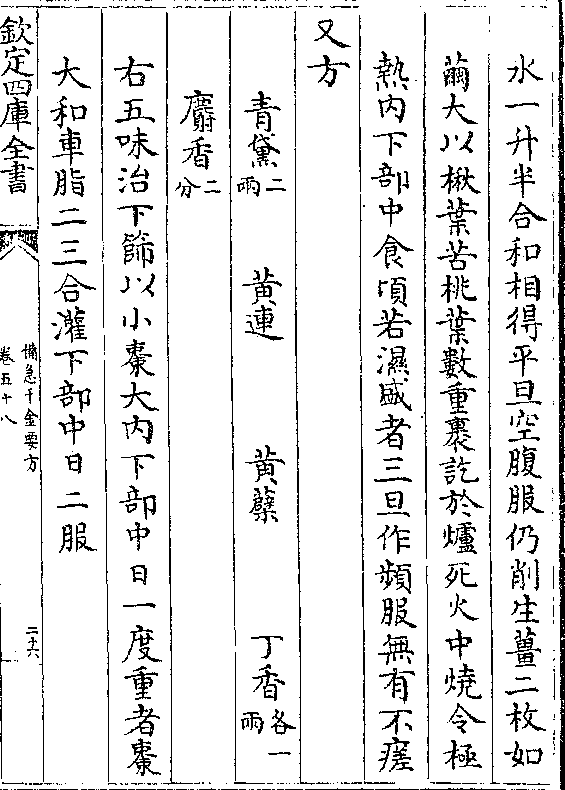 水一升半合和相得平旦空腹服仍削生薑二枚如
繭大以楸葉苦桃葉數重裹訖於爐死火中燒令極
熱内下部中食頃若濕盛者三旦作頻服無有不瘥
又方
青黛二兩 黃連 黃蘗 丁香各一兩
麝香二分
右五味治下篩以小棗大内下部中日一度重者棗
大和車脂二三合灌下部中日二服
欽定四庫全書
備急千金要方
卷五十八
二十六